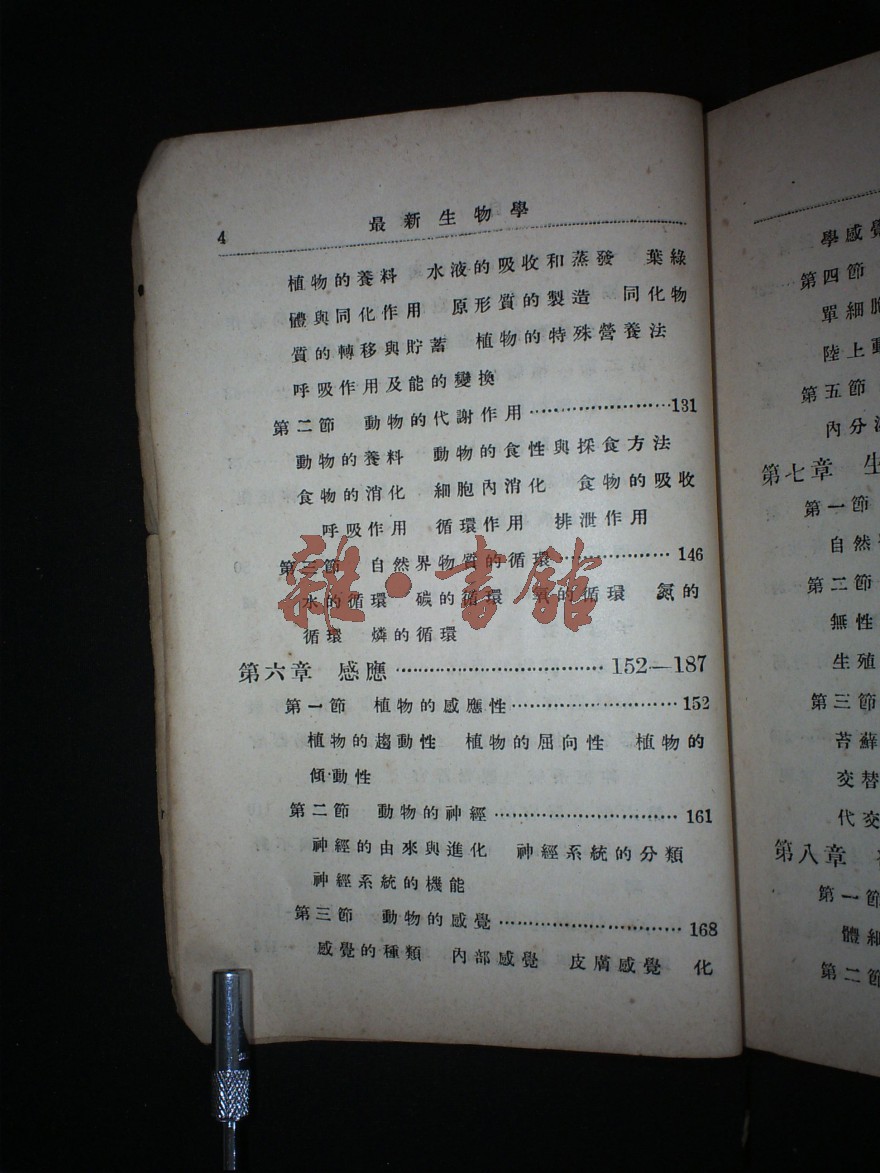 4 最新生物學
植物的養料 水液的吸收和蒸發 葉綠
體與同化作用 原形質的製造 同化物
質的轉移與貯蓄 植物的特殊營養法
呼吸作用及能的變換
第二節 動物的代謝作用……………………131
動物的養料 動物的食性與採食方法
食物的消化 細胞內消化 食物的吸收
呼吸作用 循環作用 排泄作用
第三節 自然界物質的循環………………146
水的循環 碳的循環 氧的循環 氮的
循環 燐的循環
第六章 感應………………………………152—187
第一節 植物的感應性………………………152
植物的趨動性 植物的屈向性 植物的
傾動性
第二節 動物的神經…………………………161
神經的由來與進化 神經系統的分類
神經系統的機能
第三節 動物的感覺…………………………168
感覺的種類 內部感覺 皮膚感覺 化
雜·書館
學感覺
第四節
單細胞
陸上動
第五節
內分泌
第七章 生
第一節
自然
第二節
無性
生殖
第三節
苔蘚
交替
代交
第八章
第一節
體細
第二節